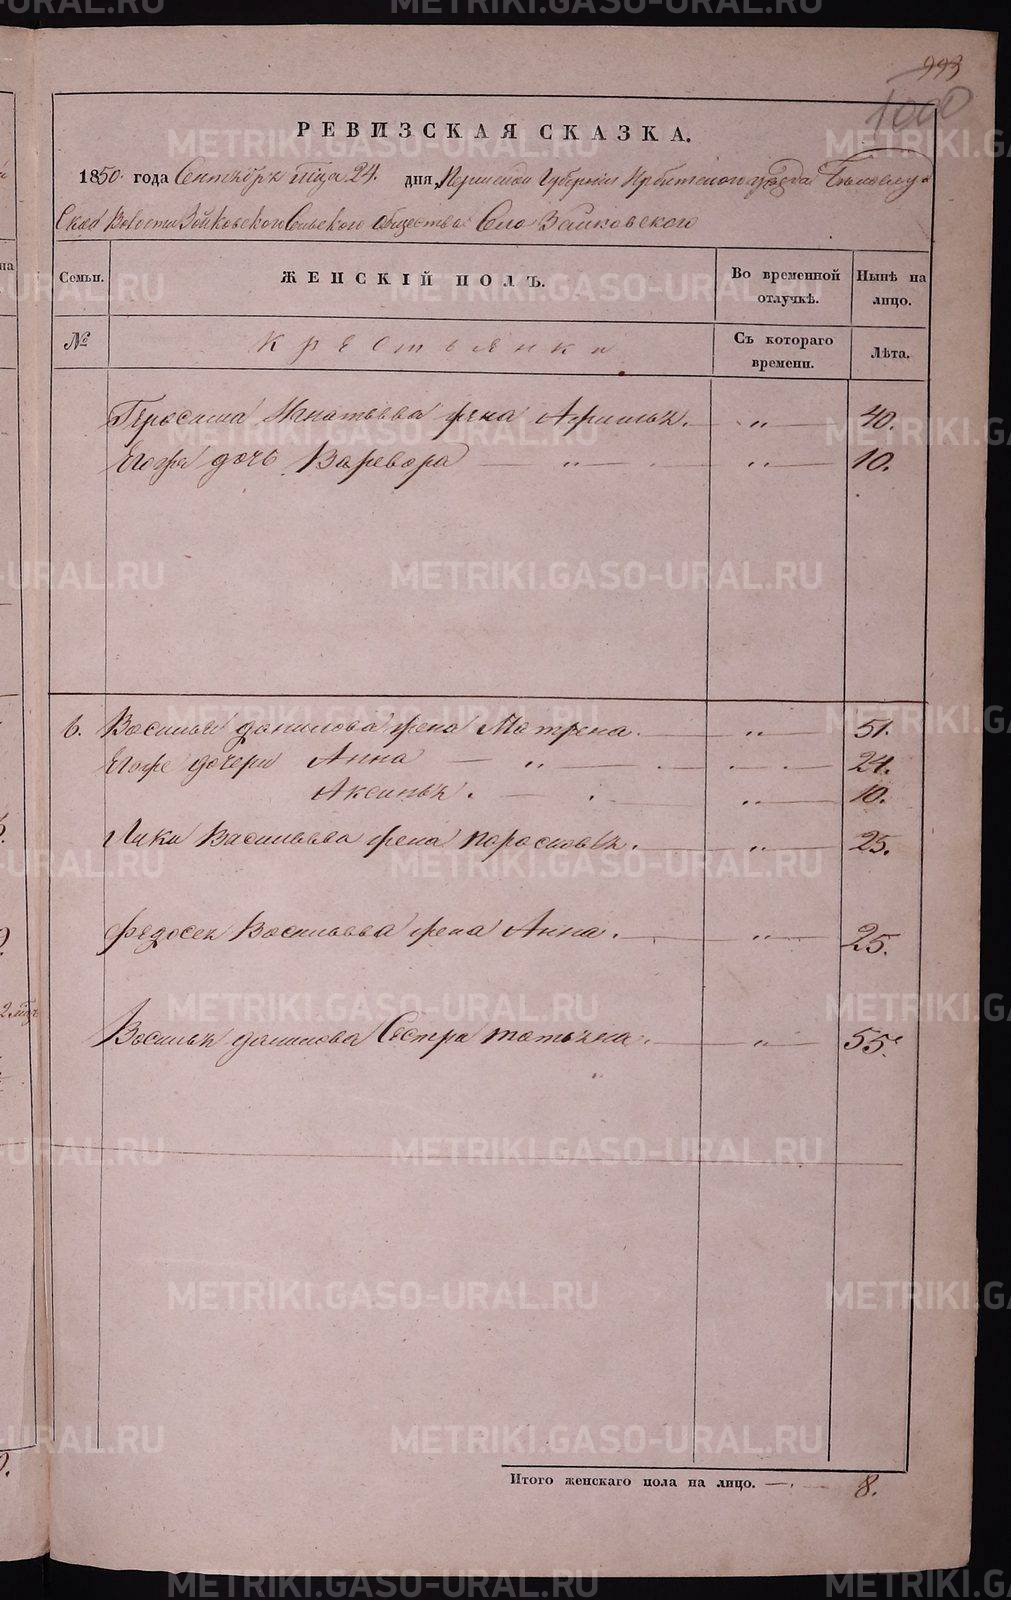 993
1000
РЕВИЗСКАЯ СКАЗКА.
1850. года Сентября мца 24. дня, Пермской Губернии Ирбитского уезда Белослуд
ской Волости Зайковского Сельского общества Села Зайковского
Семьи. ЖЕНСКІЙ ПОЛЪ. Во временной отлучкѣ. Нынѣ на лицо.
№ Крестьянки Съ котораго времени. Лѣта.
Герасима Игнатьева жена Афимья. — „ — 40.
Егоже дочь Варвара — „ — „ — 10.
6. Василья данилова жена Матрена. — „ — 51.
Егоже дочери Анна — „ — 24.
Аксинья. — „ — 10.
Луки Васильева жена Парасковья. — „ — 25.
Федосея Васильева жена Анна. — „ — 25.
Василья данилова Сестра татьяна. — „ — 55.
Итого женскаго пола на лицо. — 8.
METRIKI.GASO-URAL.RU